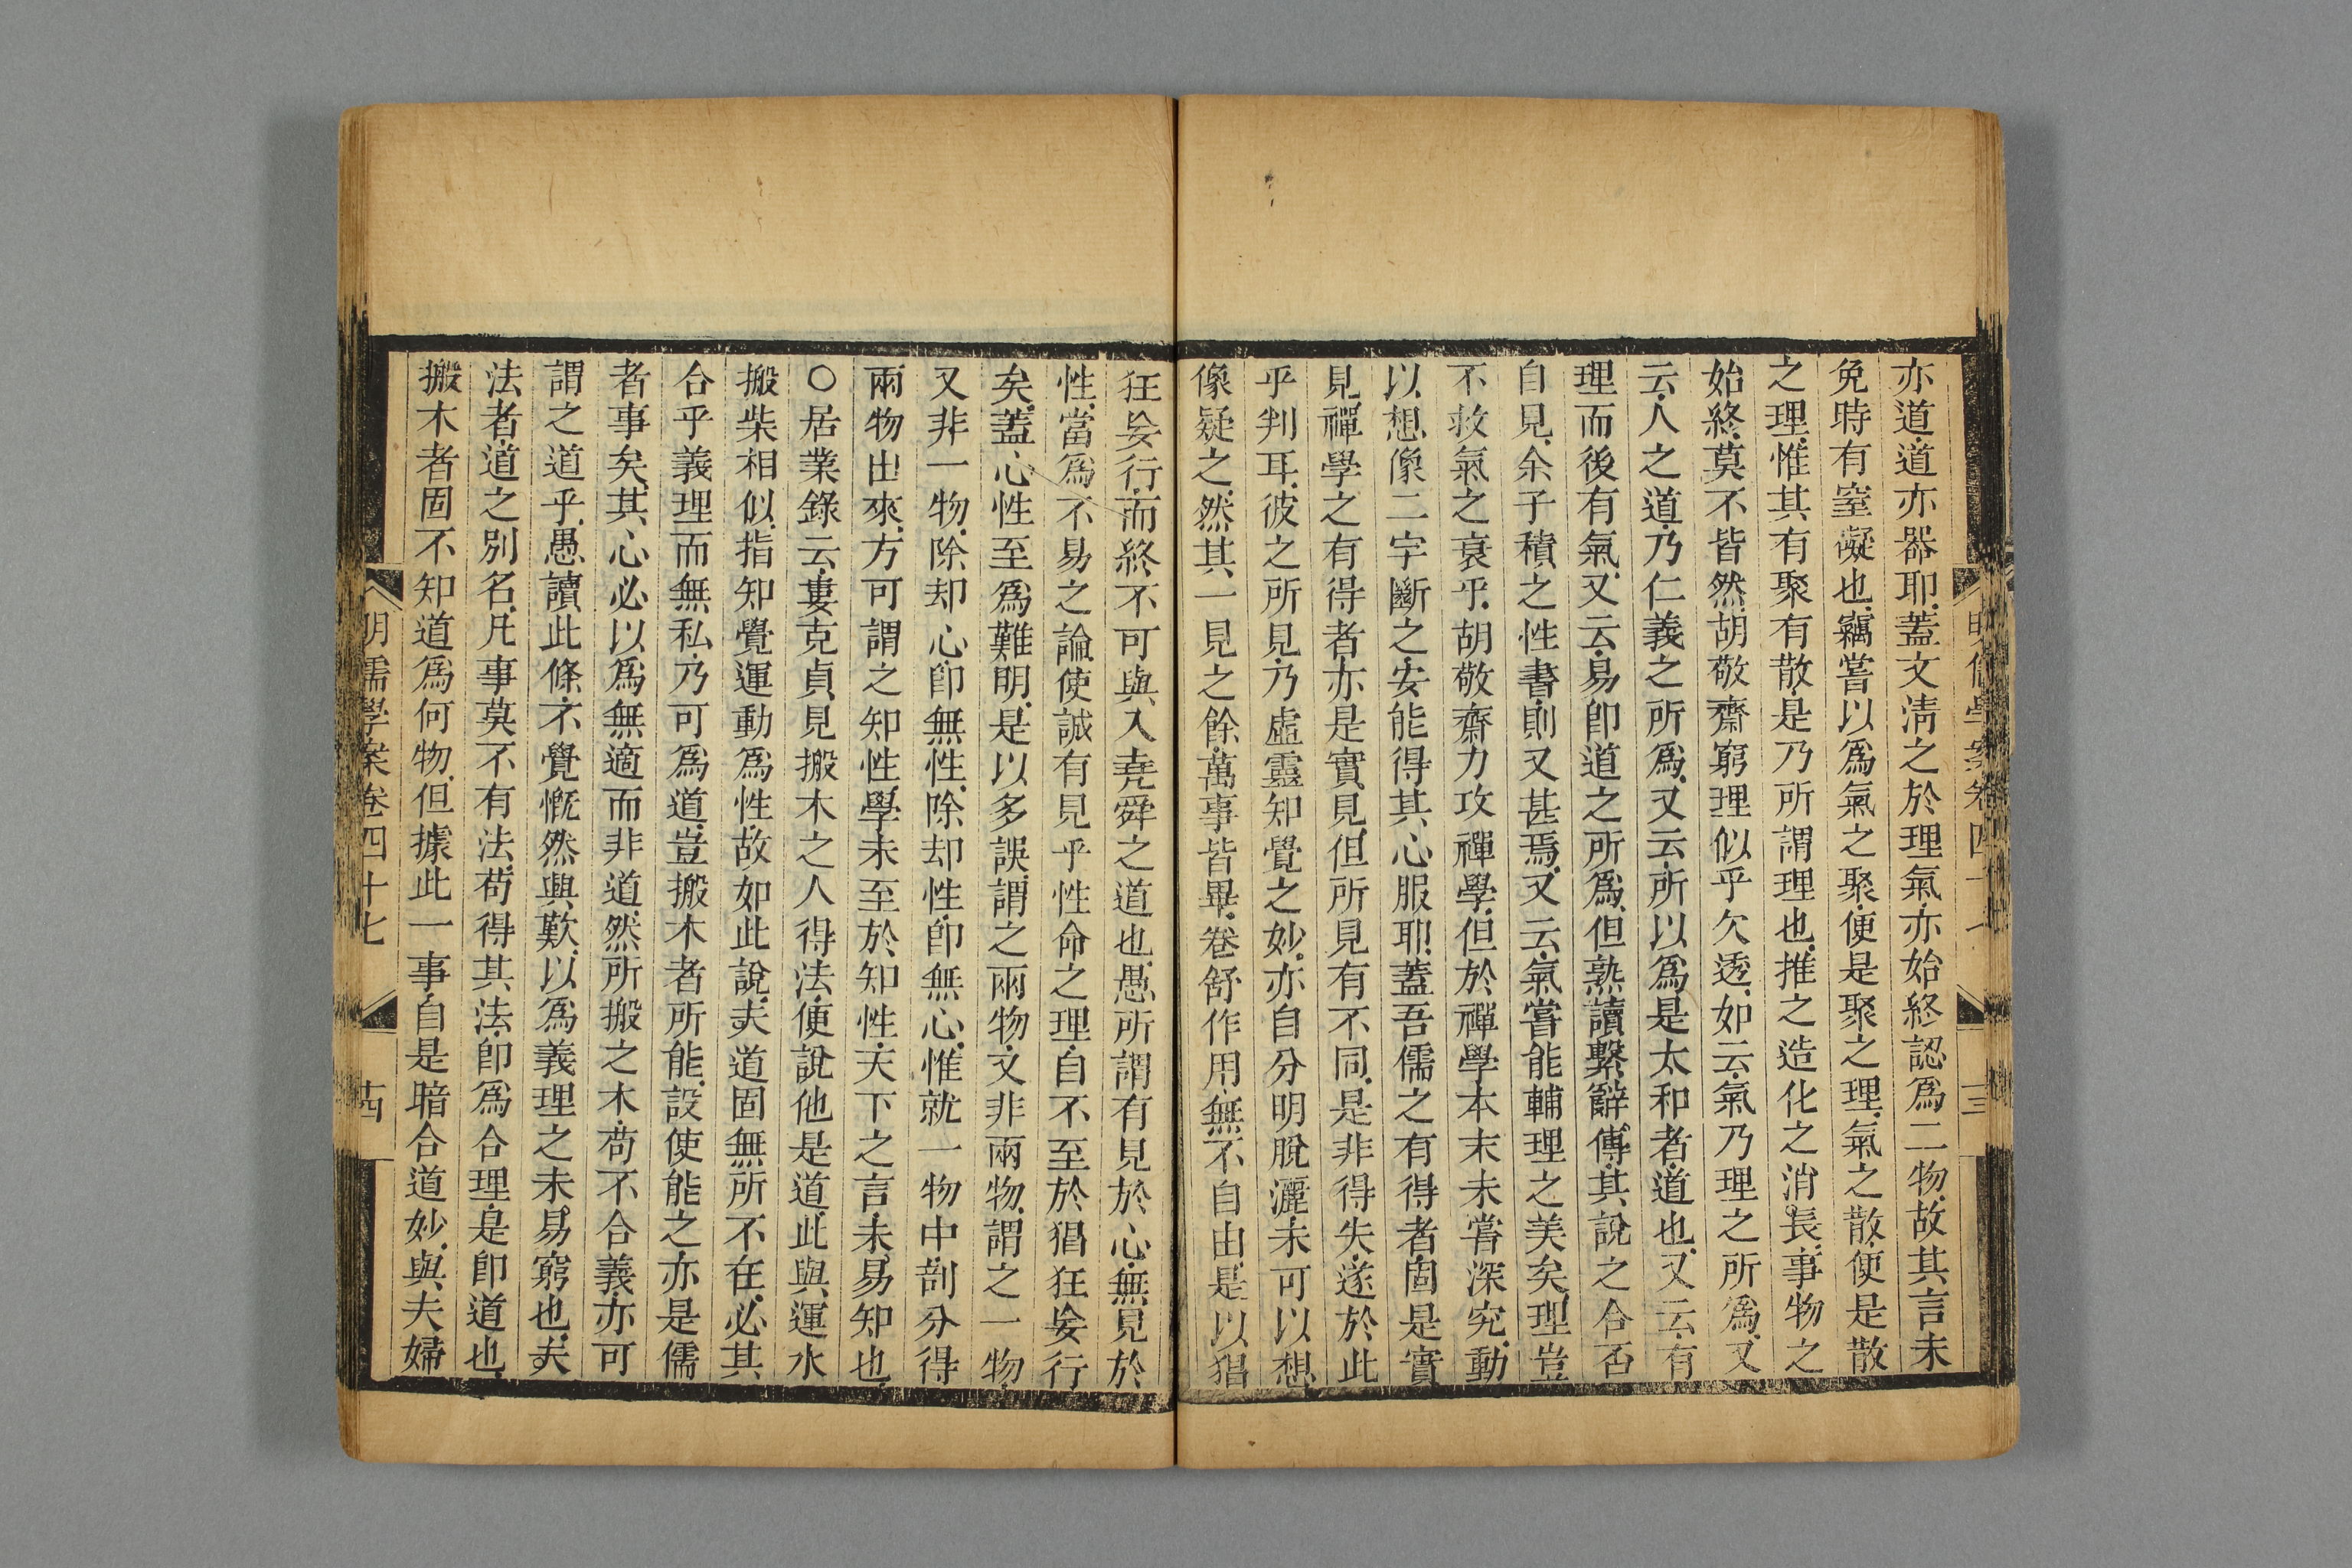 亦道道亦器耶蓋文淸之於理氣亦始終認爲二物故其言未
免時有窒礙也竊嘗以爲氣之聚便是聚之理氣之散便是散
之理惟其有聚有散是乃所謂理也推之造化之消長事物之
始終莫不皆然胡敬齋窮理似乎欠透如云氣乃理之所爲又
云人之道乃仁義之所爲又云所以爲是太和者道也又云有
理而後有氣又云易卽道之所爲但熟讀繫辭傳其說之合否
自見余子積之性書則又甚焉又云氣嘗能輔理之美矣理豈
不救氣之衰乎胡敬齋力攻禪學但於禪學本末未嘗深究動
以想像二字斷之安能得其心服耶蓋吾儒之有得者固是實
見禪學之有得者亦是實見但所見有不同是非得失遂於此
乎判耳彼之所見乃虛靈知覺之妙亦自分明脫灑未可以想
像疑之然其一見之餘萬事皆畢卷舒作用無不自由是以猖
狂妄行而終不可與入堯舜之道也愚所謂有見於心無見於
性當爲不易之論使誠有見乎性命之理自不至於猖狂妄行
矣蓋心性至爲難明是以多誤謂之兩物又非兩物謂之一物
又非一物除却心卽無性除却性卽無心惟就一物中剖分得
兩物出來方可謂之知性學未至於知性天下之言未易知也
〇居業錄云婁克貞見搬木之人得法便說他是道此與運水
搬柴相似指知覺運動爲性故如此說夫道固無所不在必其
合乎義理而無私乃可爲道豈搬木者所能設使能之亦是儒
者事矣其心必以爲無適而非道然所搬之木苟不合義亦可
謂之道乎愚讀此條不覺慨然與歎以爲義理之未易窮也夫
法者道之別名凡事莫不有法苟得其法卽爲合理是卽道也
搬木者固不知道爲何物但據此一事自是暗合道妙與夫婦
明儒學案卷四十七
十四